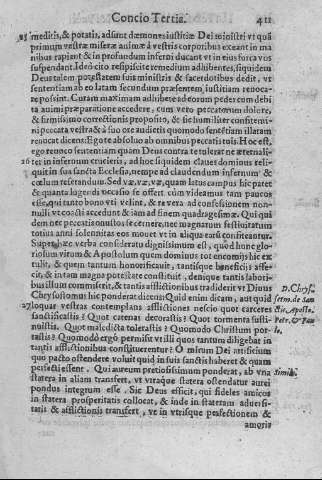 Concio Tertia.
411
25 meditis, & potatis, adsunt dæmones iustitiæ Dei ministri vt quã
primum vestræ miseræ animæ à vestris corporibus exeant in ma
nibus rapiant & in profundum inferni ducant vt in eius furca vos
suspendant. Ideò cito respiscite remedium adhibentes, siquidem
Deus talem potestatem suis ministris & sacerdotibus dedit, vt
sententiam ab eo latam secundum præsentem, iustitiam renoca-
re possint. Curam maximam adhibete ad eorum pedem cum debi
ta animi præparatione accedere, cum vero peccatorum dolore,
& firmissimo correctionis proposito, & sic humiliter confitemi-
ni peccata vestra & à suo ore audietis quomodo sententiam illatam
reuocat dicens: Ego te absoluo ab omnibus peccatis tuis. Hoc est,
ego reuoco sententiam quam Deus contra te tulerat ne æternali-
26 ter in infernum crucieris, ad hoc siquidem claues dominus reli-
quit in sua sancta Ecclesia, nempe ad claudendum infernum &
cœlum reserandum. Sed væ, væ, væ, quam latus campus hic patet
& quanta lugendi occasio se offert cùm videamus tam paucos
esse, qui tanto bono vti velint, & re vera ad confessionem non-
nulli vt coacti accedunt & iam ad finem quadragesimæ. Qui qui
dem nec peccationustos se cernere, nec magnarum festiuitatum
totius anni solemnitas eos mouet vt in aliqua earũ confiteantur.
Super hæc verba consideratu dignissimum est, quòd hunc glo-
riosum virum & Apostolum quem dominus tot encomijs hic ex
tulit, & quem tantum honorificauit, tantisque beneficijs affe-
cit, & in tam magno potestate constituit, denique tantis labori-
bus illum commiscit, & tantis afflictionibus tradiderit vt Diuus
Chrysostomus hic ponderat dicens: Quid enim dicam, aut quid
27 loquar vestras contemplans afflictiones nescio quot carceres
sanctificastis? Quot catenas decorastis? Quot tormenta susti-
nuistis. Quot maledicta tolerastis? Quomodo Christum por-
tastis? Quomodo ergò permisit vt illi quos tantum diligebat in
tantis afflictionibus constituerentur? O mirum Dei artificium
quo pacto ostendere voluit quid in suis sanctis haberet & quam
perfecti essent. Qui aureum pretiosissimum ponderat, ab vna
statera in aliam transfert, vt vtraque statera ostendatur aurei
pondus integrum esse. Sic Deus efficit, qui fideles amicos
in statera prosperitatis collocat, & inde in stateram aduersi-
tatis & afflictionis transfert, vt in vtrisque perfectionem &
amoris
D. Chrys.
serm. de San
ctis, Aposto.
Petr. & Pau
lo.
Simile.